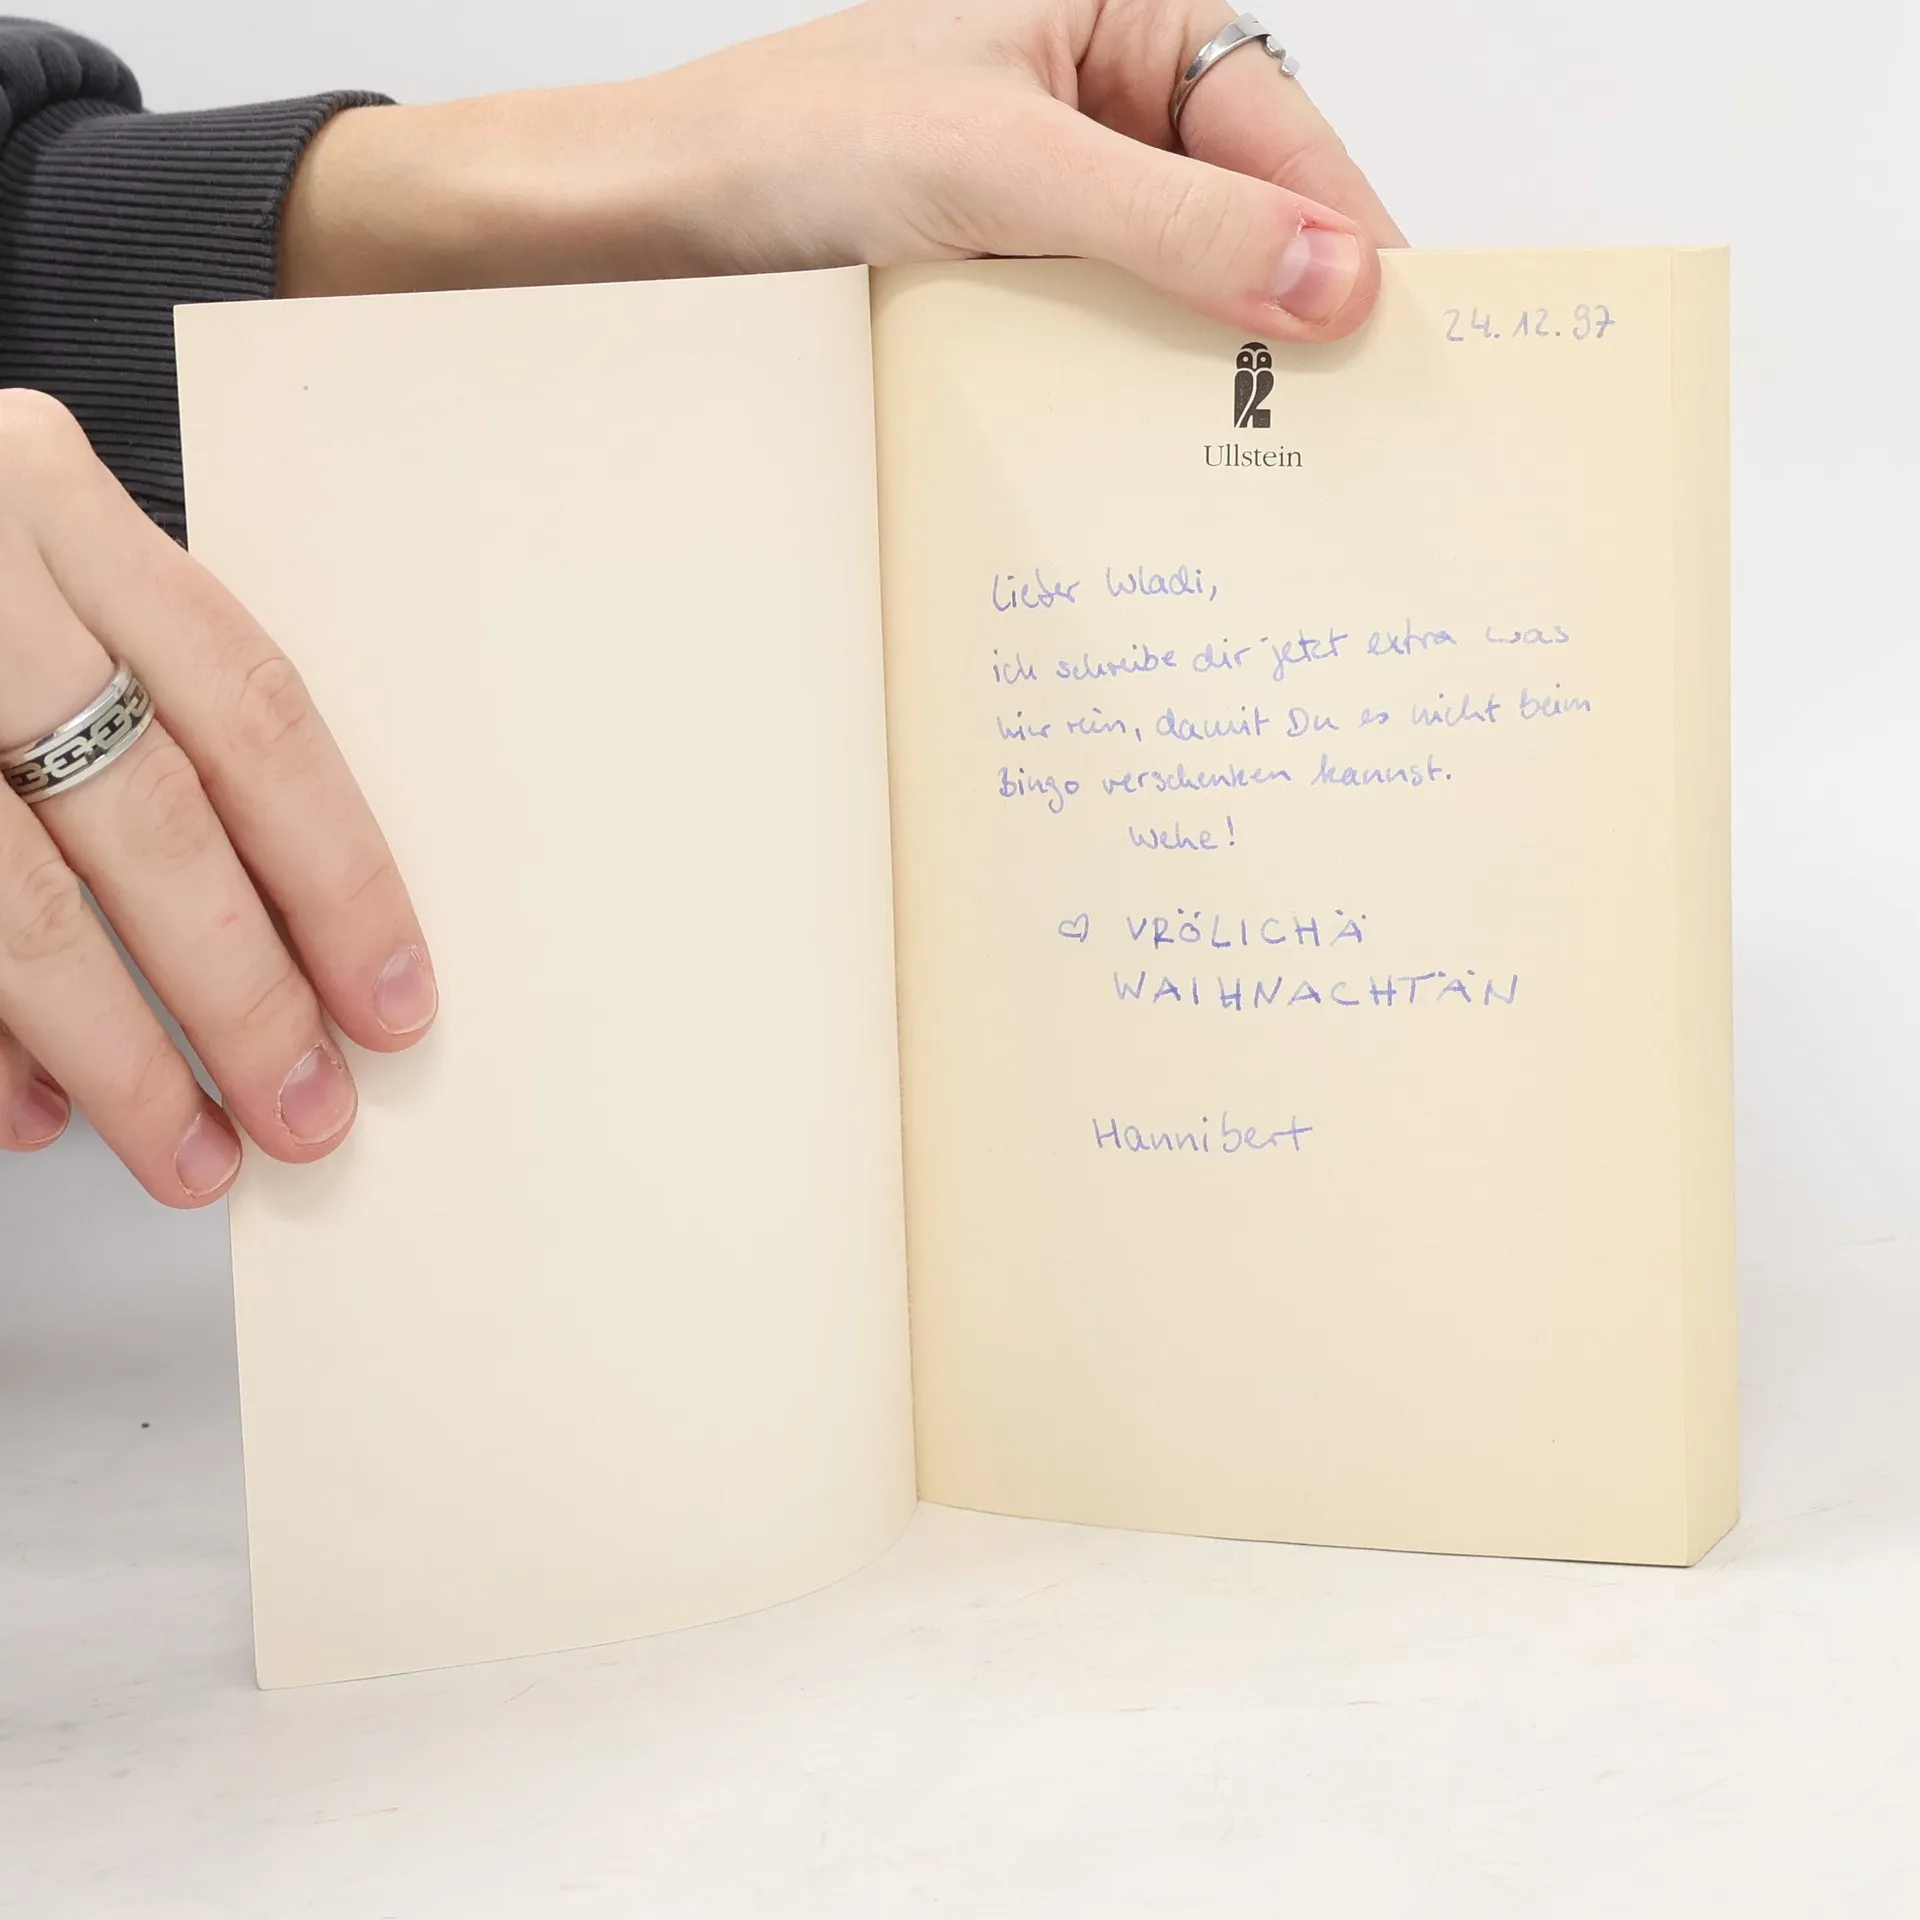 24.12.97
Ullstein
Lieber Wladi,
ich schreibe dir jetzt extra was
hier rein, damit Du es nicht beim
Bingo verschenken kannst.
Wehe!
♡ VRÖLICHÄ
WAIHNACHTÄN
Hannibert